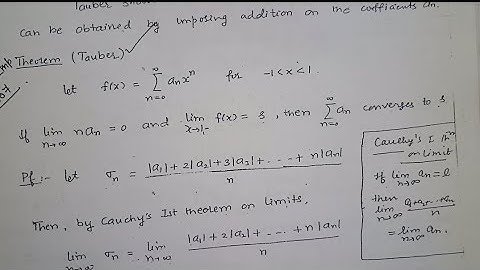 Tauber
can be obtained by imposing addition on the coefficients an.
Imp Theorem (Tauber)
let f(x) = ∑_{n=0}^{∞} a_n x^n for -1<x<1.
If lim_{n→∞} n a_n = 0 and lim_{x→1-} f(x) = s, then ∑_{n=0}^{∞} a_n converges to s.
Pf:- let σ_n = |a_1| + 2|a_2| + 3|a_3| + - - - + n|a_n| / n
Then, by Cauchy's Ist theorem on limits,
lim_{n→∞} σ_n = lim_{n→∞} |a_1| + 2|a_2| + - - - + n|a_n| / n
Cauchy's I th^m
on limit
If lim_{n→∞} a_n = l
then
lim_{n→∞} a_1+a_2+..+a_n / n
= lim_{n→∞} a_n.